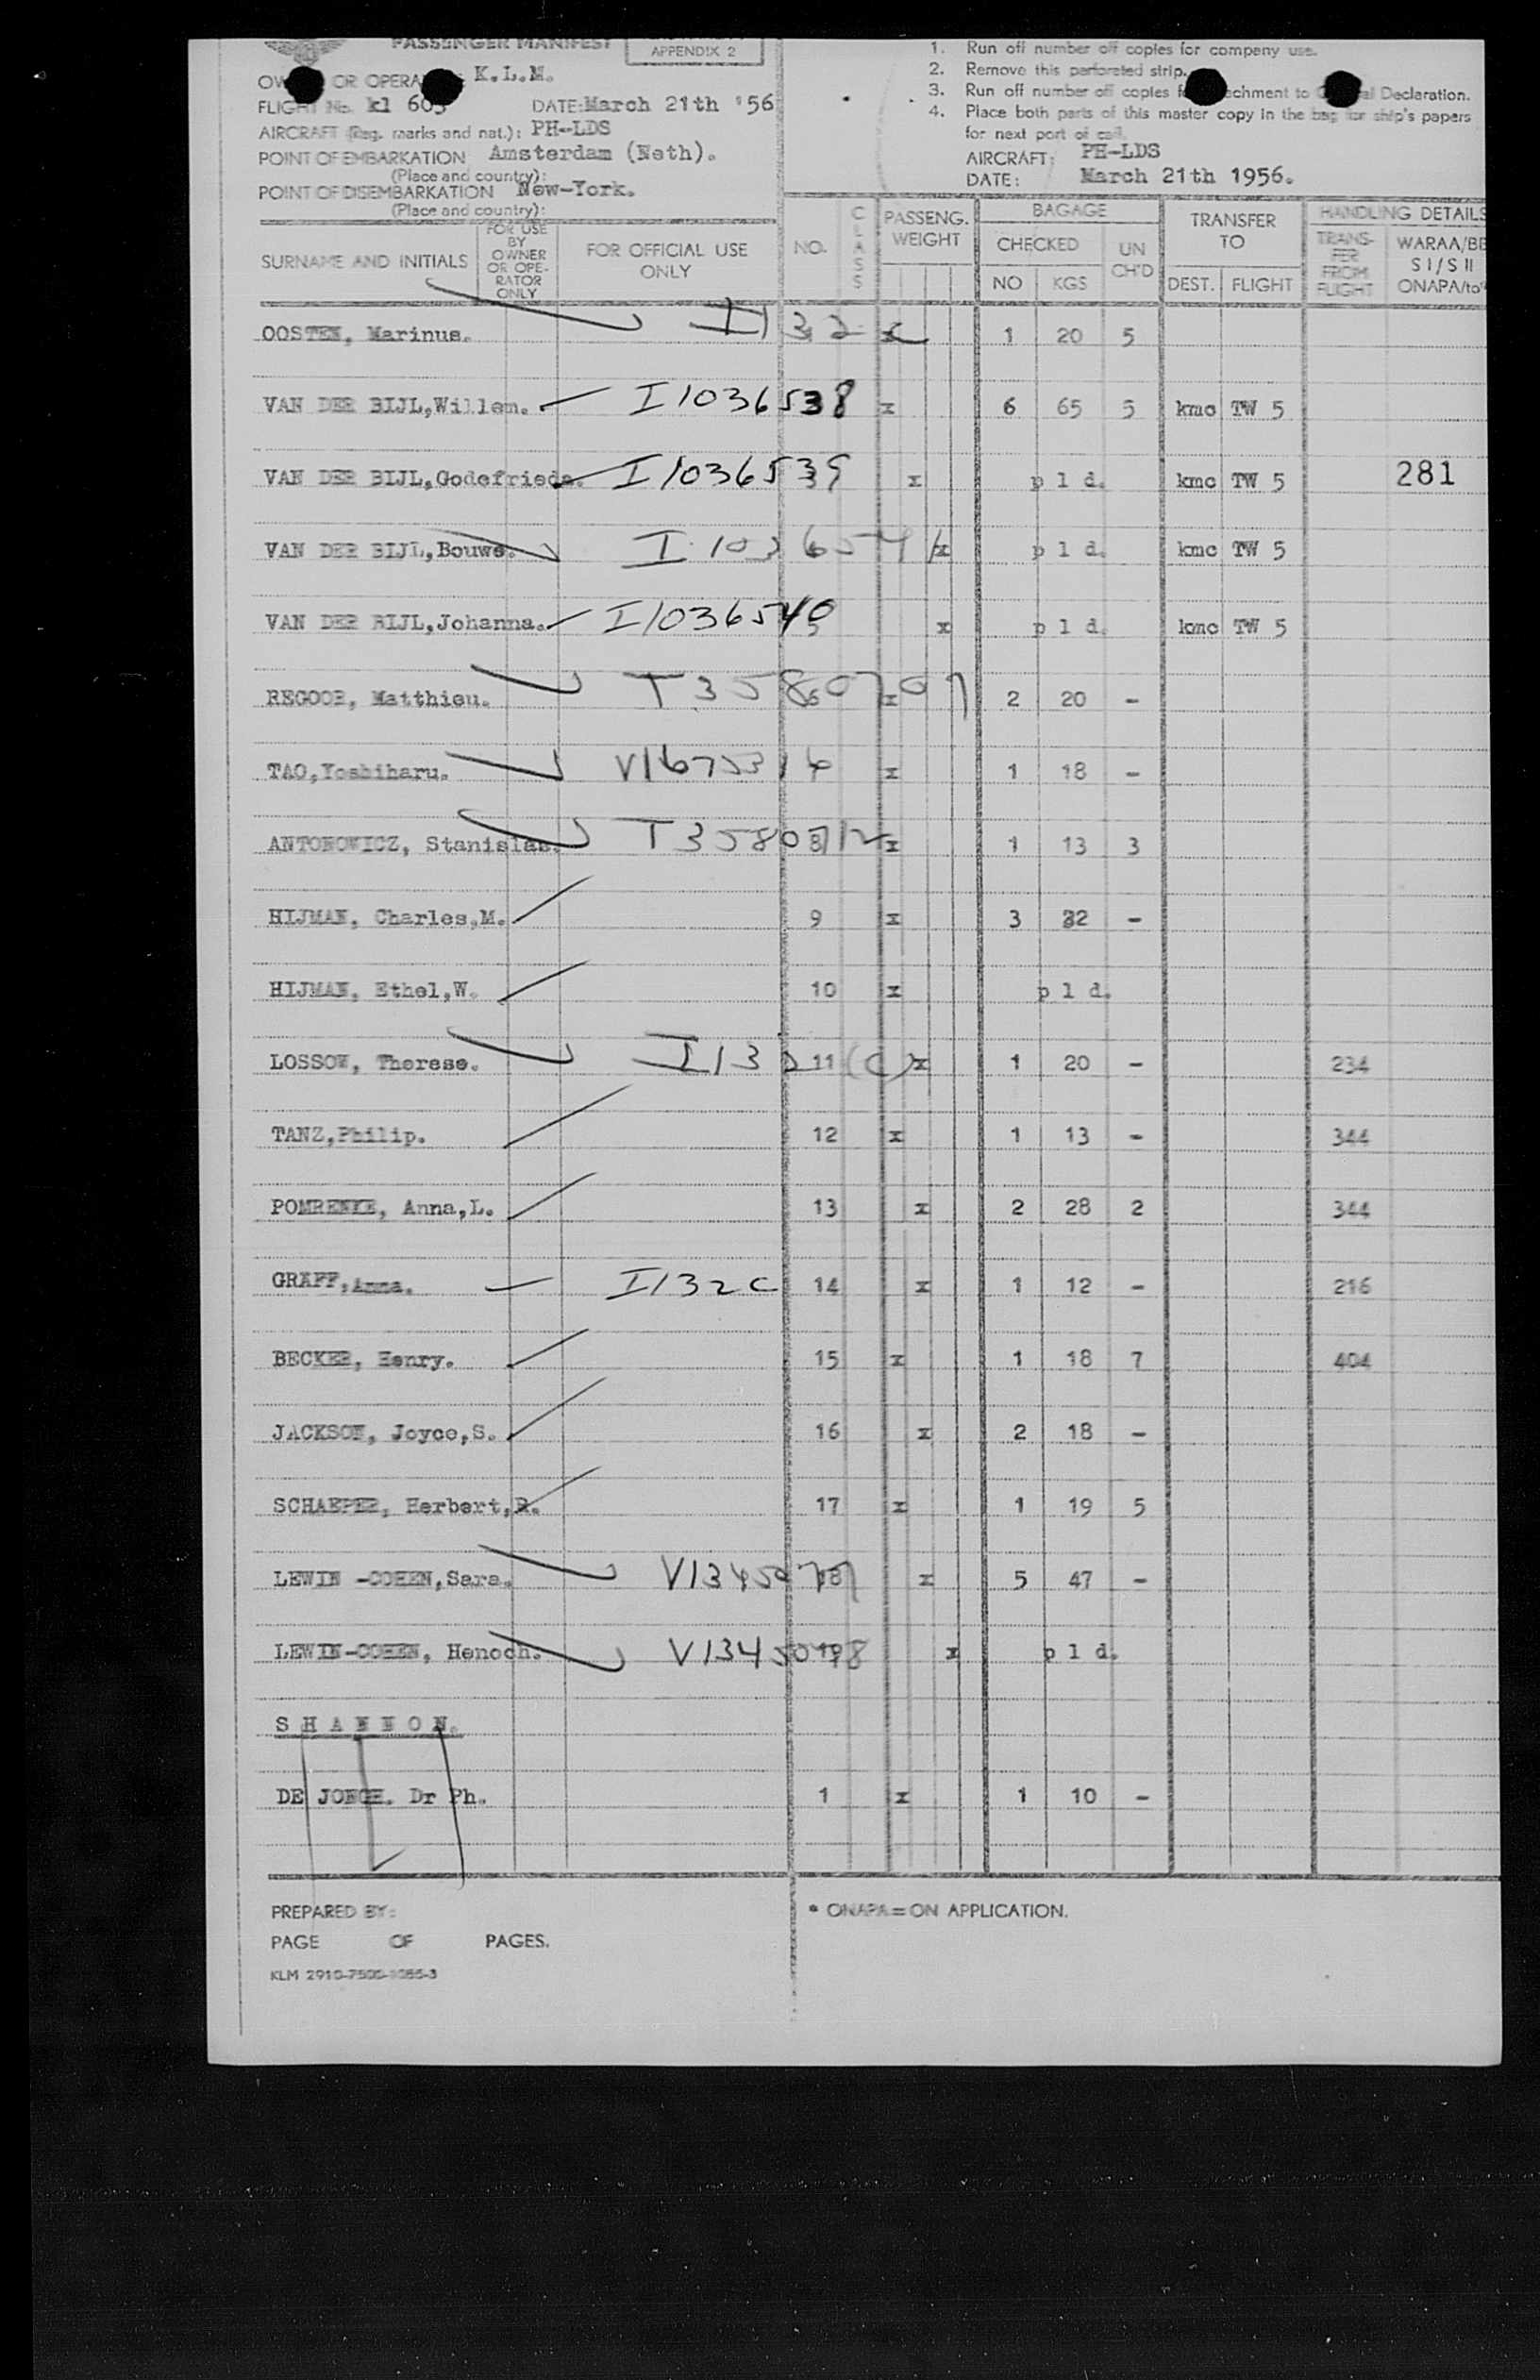 PASSENGER MANIFEST
APPENDIX 2
OR OPERA K.L.M.
FLIGHT No. kl 603 DATE: March 21th '56
AIRCRAFT (Reg. marks and nat.): PH-LDS
POINT OF EMBARKATION Amsterdam (Neth).
(Place and country):
POINT OF DISEMBARKATION New-York.
(Place and country):
1. Run off number off copies for company use.
2. Remove this perforated strip.
3. Run off number off copies for to Declaration.
4. Place both parts of this master copy in the bag for ship's papers
for next port of call.
AIRCRAFT: PH-LDS
DATE: March 21th 1956.
SURNAME AND INITIALS FOR USE BY OWNER OR OPERATOR ONLY FOR OFFICIAL USE ONLY NO. CLASS PASSENG. WEIGHT BAGAGE CHECKED NO KGS UN CH'D TRANSFER TO DEST. FLIGHT HANDLING DETAILS TRANSFER FROM FLIGHT WARAA/BE S I/S II ONAPA/to*
OOSTEN, Marinus. I 132 c x 1 20 5
VAN DER BIJL,Willem. I1036538 x 6 65 5 kmc TW 5
VAN DER BIJL,Godefrieda. I1036539 x p l d. kmc TW 5 281
VAN DER BIJL,Bouwe. I 1036541 x p l d. kmc TW 5
VAN DER BIJL,Johanna. I1036540 x p l d. kmc TW 5
REGOOR, Matthieu. T3580709 x 2 20 -
TAO,Yoshiharu. V1675314 x 1 18 -
ANTONOWICZ, Stanislas. T3580712 x 1 13 3
HIJMAN, Charles,M. 9 x 3 32 -
HIJMAN, Ethel,W. 10 x p l d.
LOSSOW, Therese. I132 (C) 11 x 1 20 - 234
TANZ,Philip. 12 x 1 13 - 344
POMRENKE, Anna,L. 13 x 2 28 2 344
GRAFF,Anna. I132C 14 x 1 12 - 216
BECKER, Henry. 15 x 1 18 7 404
JACKSON, Joyce,S. 16 x 2 18 -
SCHAEPER, Herbert,R. 17 x 1 19 5
LEWIN -COHEN,Sara. x 5 47 -
LEWIN-COHEN, Henoch. V1345098 x p l d.
S H A N N O N.
DE JONGH. Dr Ph. 1 x 1 10 -
PREPARED BY:
PAGE OF PAGES.
* ONAPA = ON APPLICATION.